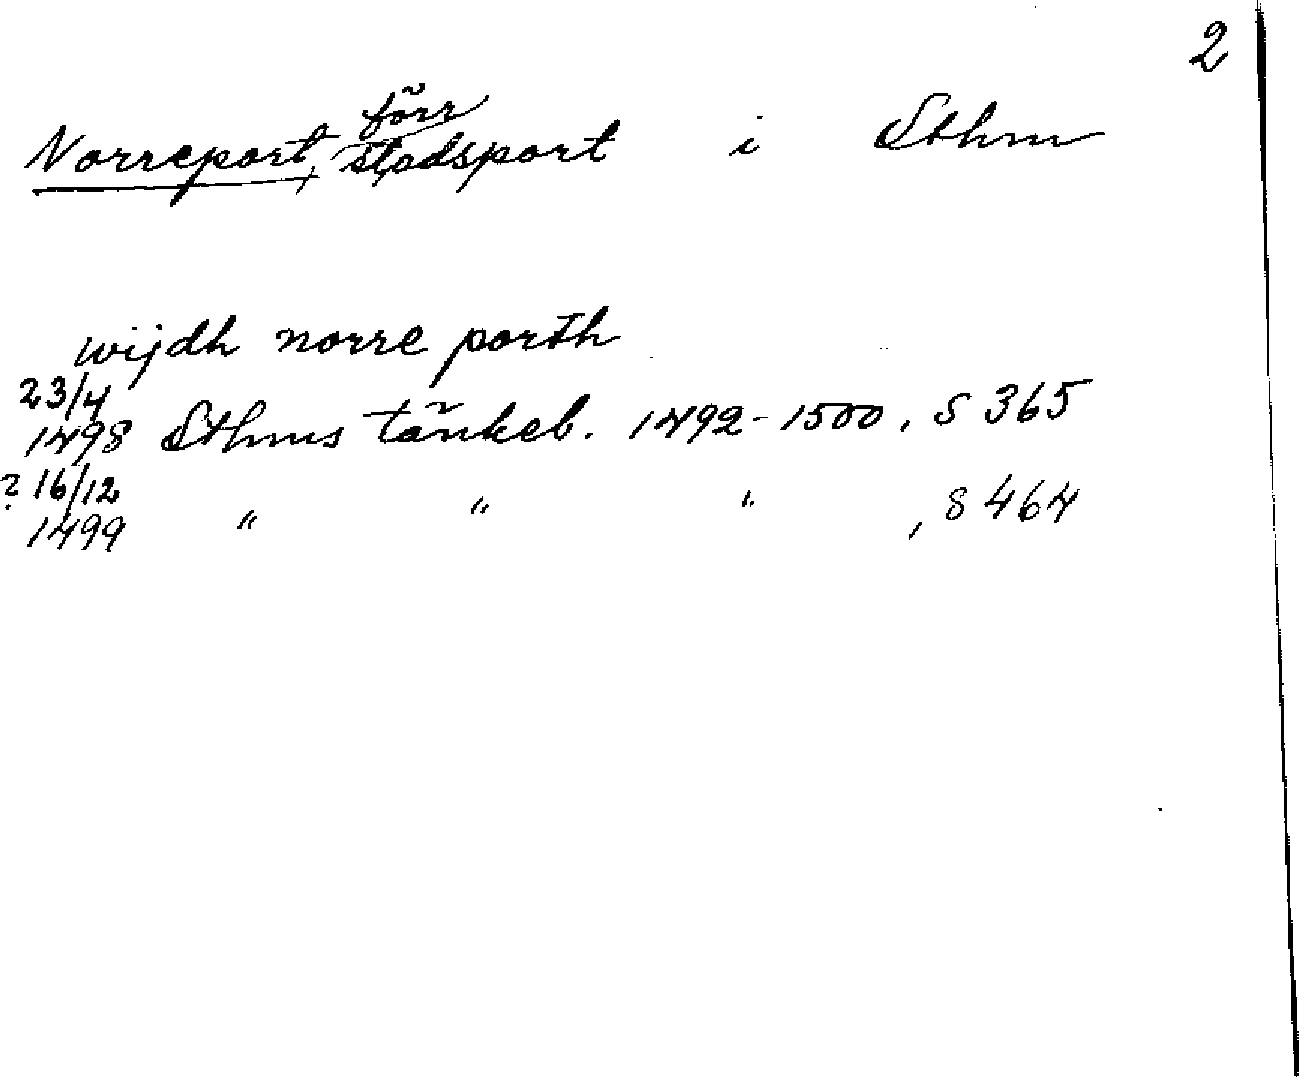 2
Norreport, förr stadsport i Sthm
wijdh norre porth
23/4
1498 Sthms tänkeb. 1492-1500, S 365
? 16/12
1499 " " " , S 464